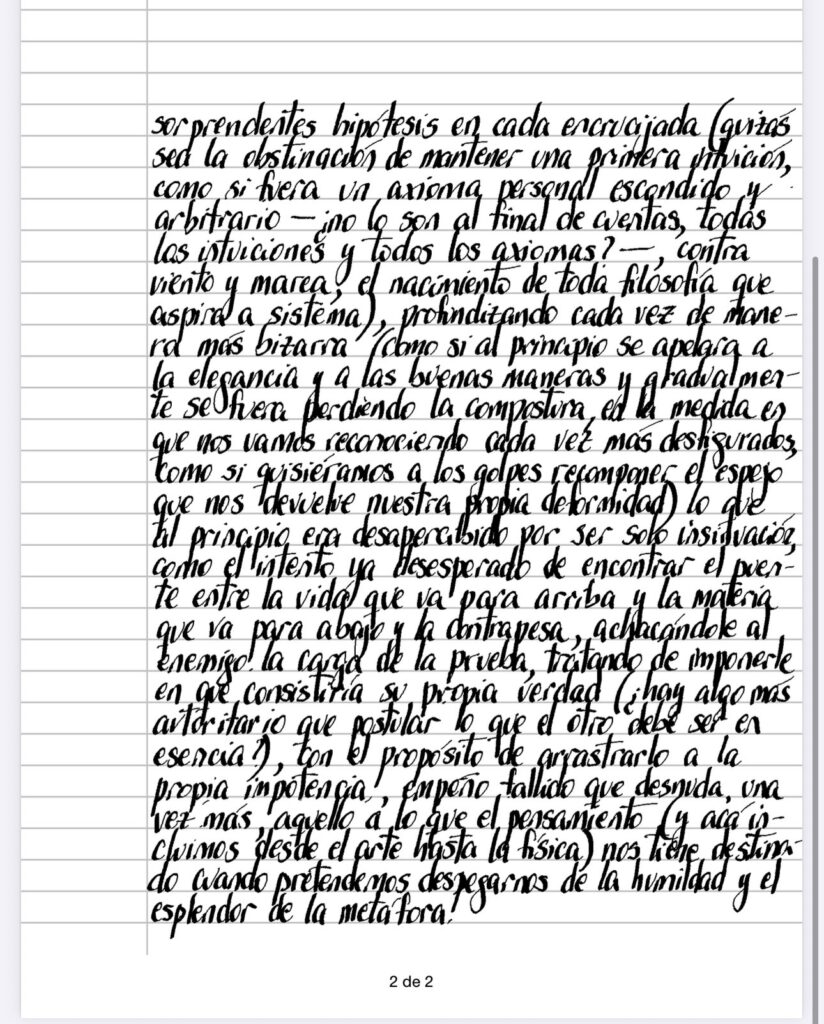 sorprendentes hipótesis en cada encrucijada (quizás
sea la obstinación de mantener una primera intuición,
como si fuera un axioma personal escondido y
arbitrario —¿no lo son al final de cuentas, todas
las intuiciones y todos los axiomas?—, contra
viento y marea, el nacimiento de toda filosofía que
aspira a sistema), profundizando cada vez de mane-
ra más bizarra (como si al principio se apelara a
la elegancia y a las buenas maneras y gradualmen-
te se fuera perdiendo la compostura, en la medida en
que nos vamos reconociendo cada vez más desfigurados,
como si quisiéramos a los golpes recomponer el espejo
que nos devuelve nuestra propia deformidad) lo que
al principio era desapercibido por ser solo insinuación,
como el intento ya desesperado de encontrar el puen-
te entre la vida que va para arriba y la materia
que va para abajo y la contrapesa, achacándole al
enemigo la carga de la prueba, tratando de imponerle
en qué consistiría su propia verdad (¿hay algo más
autoritario que postular lo que el otro debe ser en
esencia?), con el propósito de arrastrarlo a la
propia impotencia, empeño fallido que desnuda, una
vez más, aquello a lo que el pensamiento (y acá in-
cluimos desde el arte hasta la física) nos tiene destina-
do cuando pretendemos despegarnos de la humildad y el
esplendor de la metáfora.
2 de 2